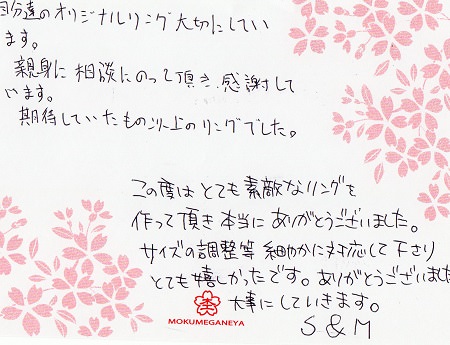 自分達のオリジナルリング大切にしてい
ます。
親身に相談にのって頂き、感謝して
います。
期待していたもの以上のリングでした。
この度はとても素敵なリングを
作って頂き本当にありがとうございました。
サイズの調整等 細やかに対応して下さり
とても嬉しかったです。ありがとうございました
大事にしていきます。
MOKUMEGANEYA
S & M